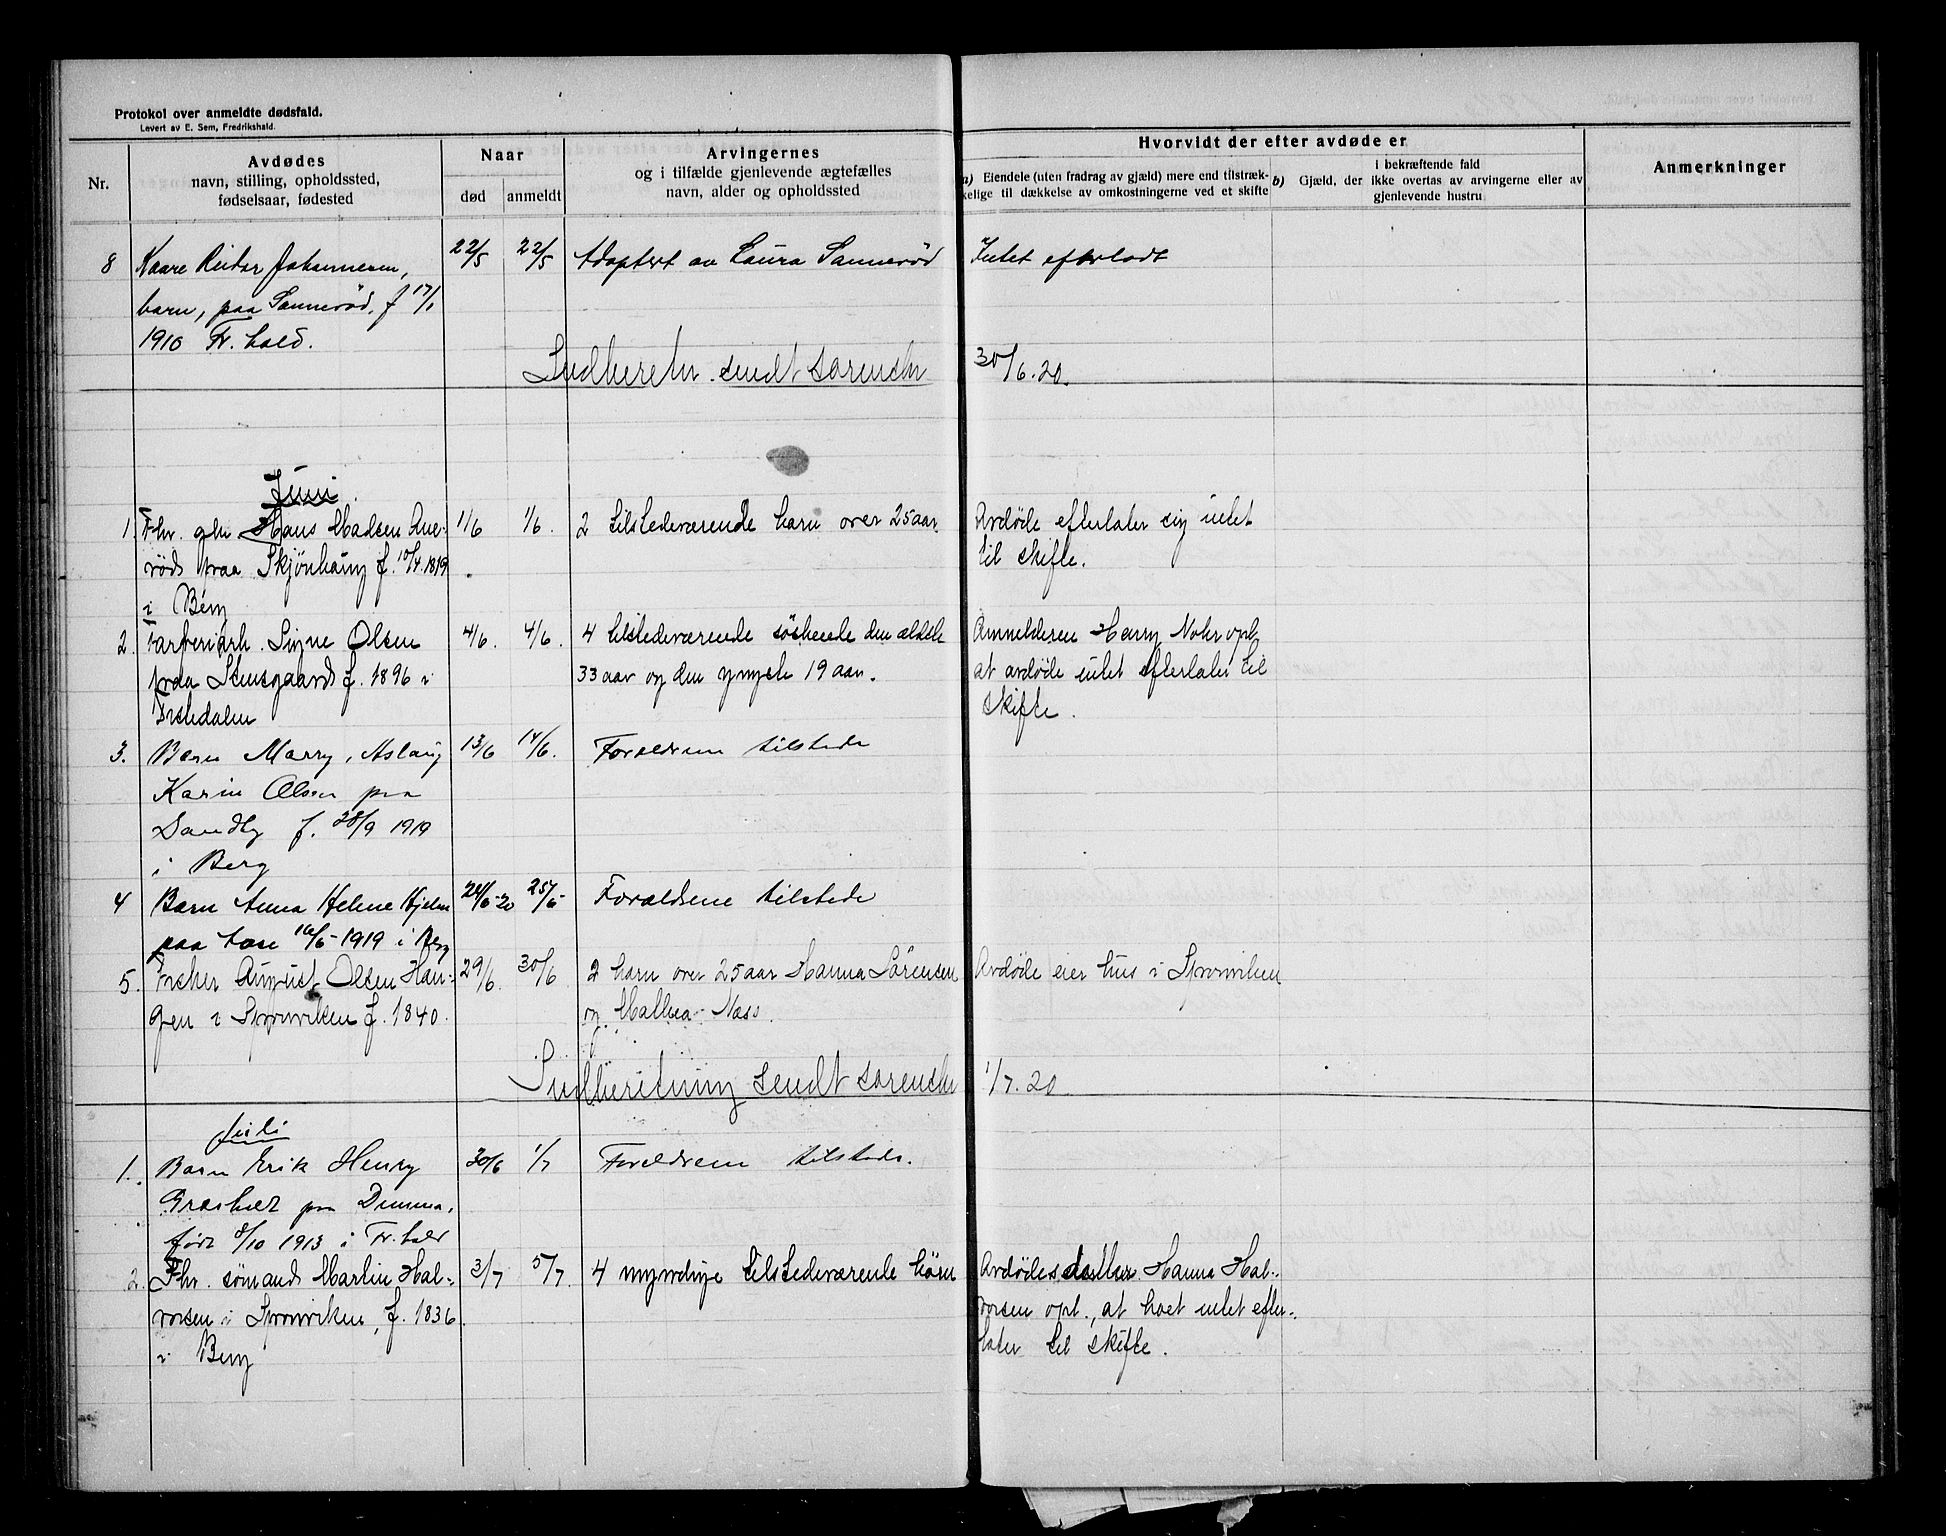 Protokol over anmeldte dødsfald.
Levert av E. Sem, Fredrikshald.
Nr.
Avdødes
navn, stilling, opholdssted,
fødselsaar, fødested
Naar
død
anmeldt
Arvingernes
og i tilfælde gjenlevende ægtefælles
navn, alder og opholdssted
Hvorvidt der efter avdøde er
a) Eiendele (uten fradrag av gjæld) mere end tilstræk-
kelige til dækkelse av omkostningerne ved et skifte
b) Gjæld, der
i bekræftende fald
ikke overtas av arvingerne eller av
gjenlevende hustru
Anmerkninger
8 Kaare Reidar Johannesen, 22/5 22/5 Adoptert av Laura Sannerød Intet efterladt
barn, paa Sannerød, f 17/1
1910 Fr.hald.
Indberetn. sendt sorenskr 30/6.20.
Juni.
1. Fhv. gbr Hans Madsen 1/6 1/6. 2 tilstedeværende barn over 25 aar. Avdøde efterlater sig intet
røds paa Skjønhaug f. 10/4.1819 til skifte.
i Berg
2. Signe Olsen 4/6. 4/6. 4 tilstedeværende søskende den ældste Anmelderen Harry Nohr opl.
paa Stensgaard f. 1896 i 33 aar og den yngste 19 aar. at avdøde intet efterlater til
Tistedalen skifte.
3. Barn Marry, Aslaug 13/6 14/6. Forældrene tilstede
Karin Olsen paa
Sandby f. 28/9 1919
i Berg
4 Barn Anna Helene Hjelm 24/6-20 25/6- Forældrene tilstede
paa 16/5-1919 i Berg
5. Fisker August Olsen Hau- 29/6. 30/6 2 barn over 25 aar Hanna Sørensen Avdøde eier hus i Sponviken
gen i Sponviken f. 1840. og Mathea Næss.
Indberetning sendt sorenskr 1/7.20
Juli
1. Barn Erik Henry 30/6 1/7 Forældrene tilstede.
paa
født 8/10 1913 i Fr.hald
2. Fhv. sømand Martin Hal- 3/7 5/7. 4 myndige tilstedeværende børn Avdødes datter Hanna Hal-
vorsen i Sponviken, f. 1836. vorsen opl., at boet intet efter-
i Berg later til skifte.